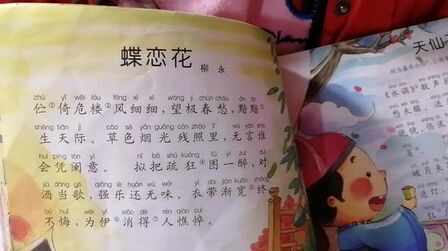 蝶恋花
柳永
zhù yǐ wēi lóu fēng xì xì wàng jí chūn chóu àn àn
伫①倚危楼②风细细，望极春愁，黯黯③
shēng tiān jì cǎo sè yān guāng cán zhào lǐ wú yán shéi
生天际。草色烟光残照里，无言谁
huì píng lán yì nǐ bǎ shū kuáng tú yí zuì duì
会凭阑意。 拟把疏狂④图一醉，对
jiǔ dāng gē qiǎng lè huán wú wèi yī dài jiàn kuān zhōng
酒当歌，强乐还无味。衣带渐宽⑤终
bù huǐ wèi yī xiāo dé rén qiáo cuì
不悔，为伊⑥消得人憔悴。
天仙